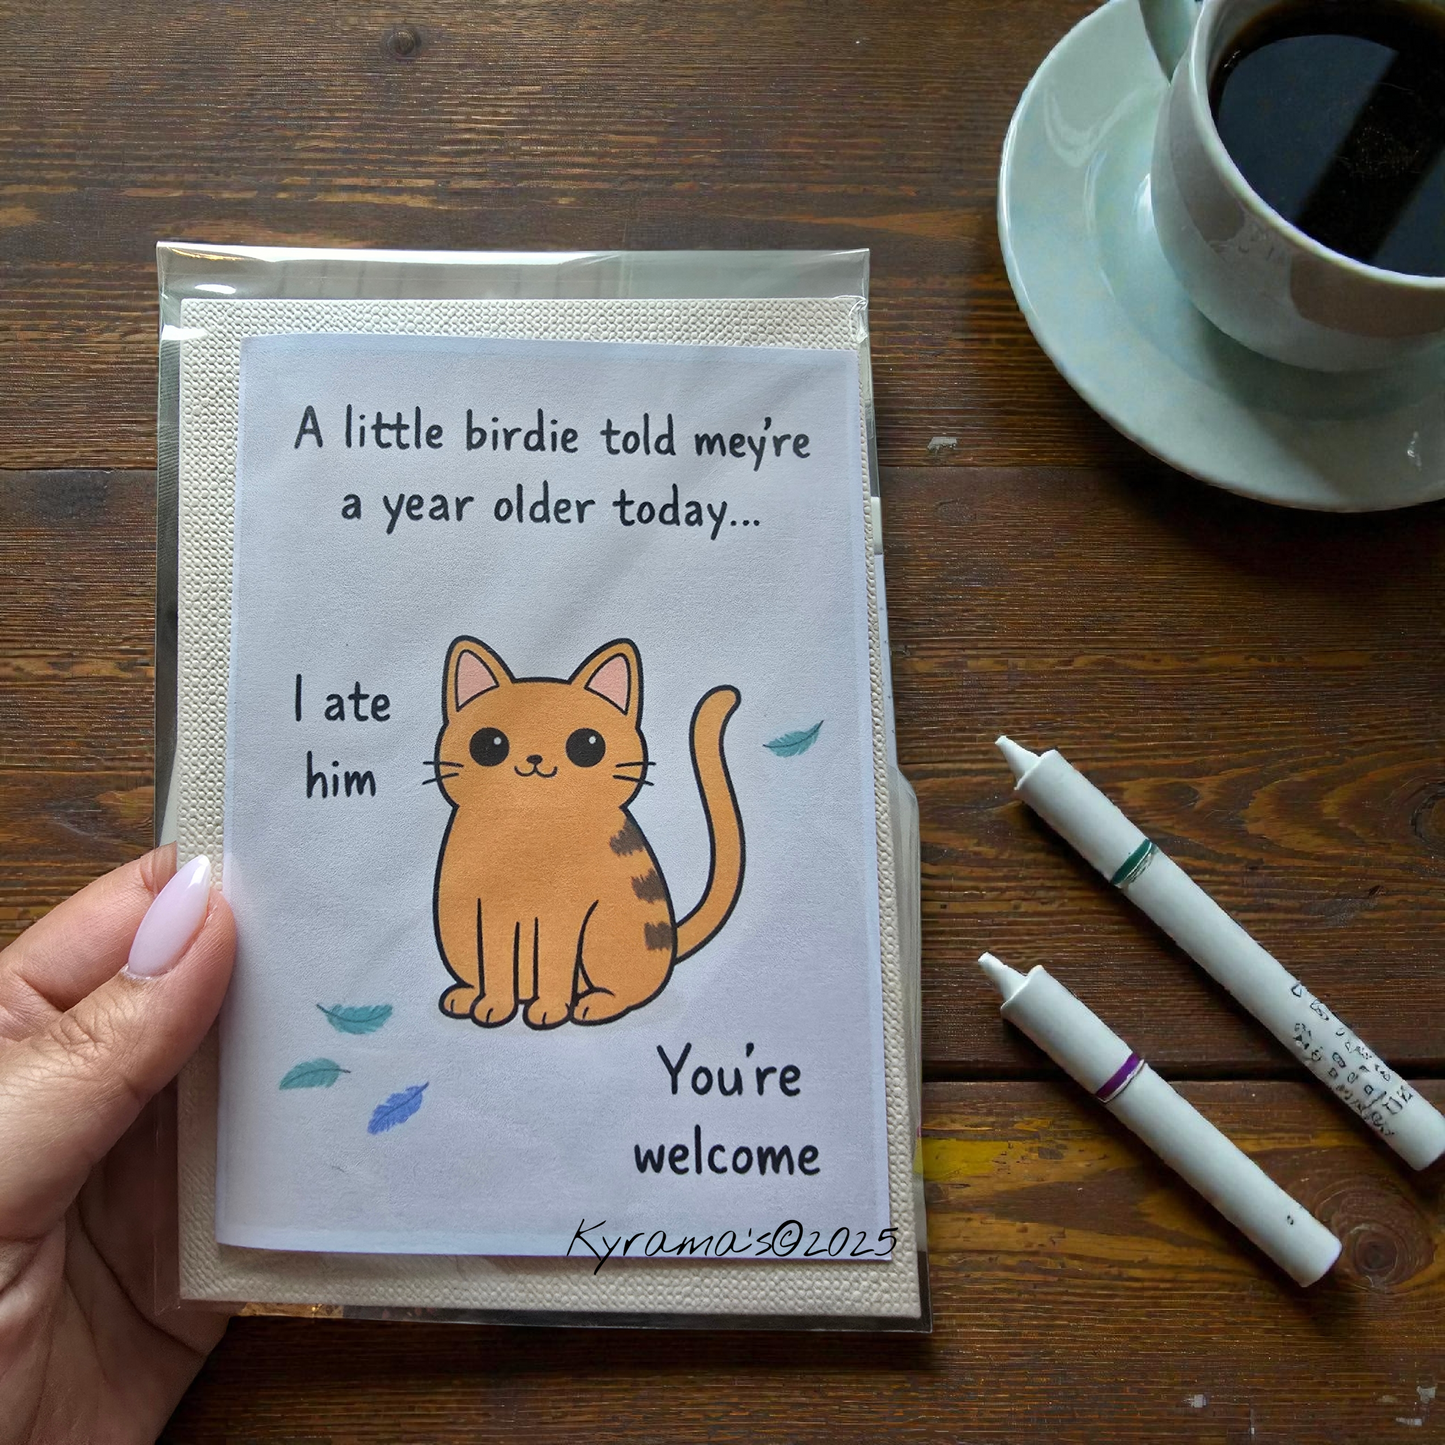 A little birdie told mey're
a year older today...
I ate
him
You're
welcome
Kyrama's©2025